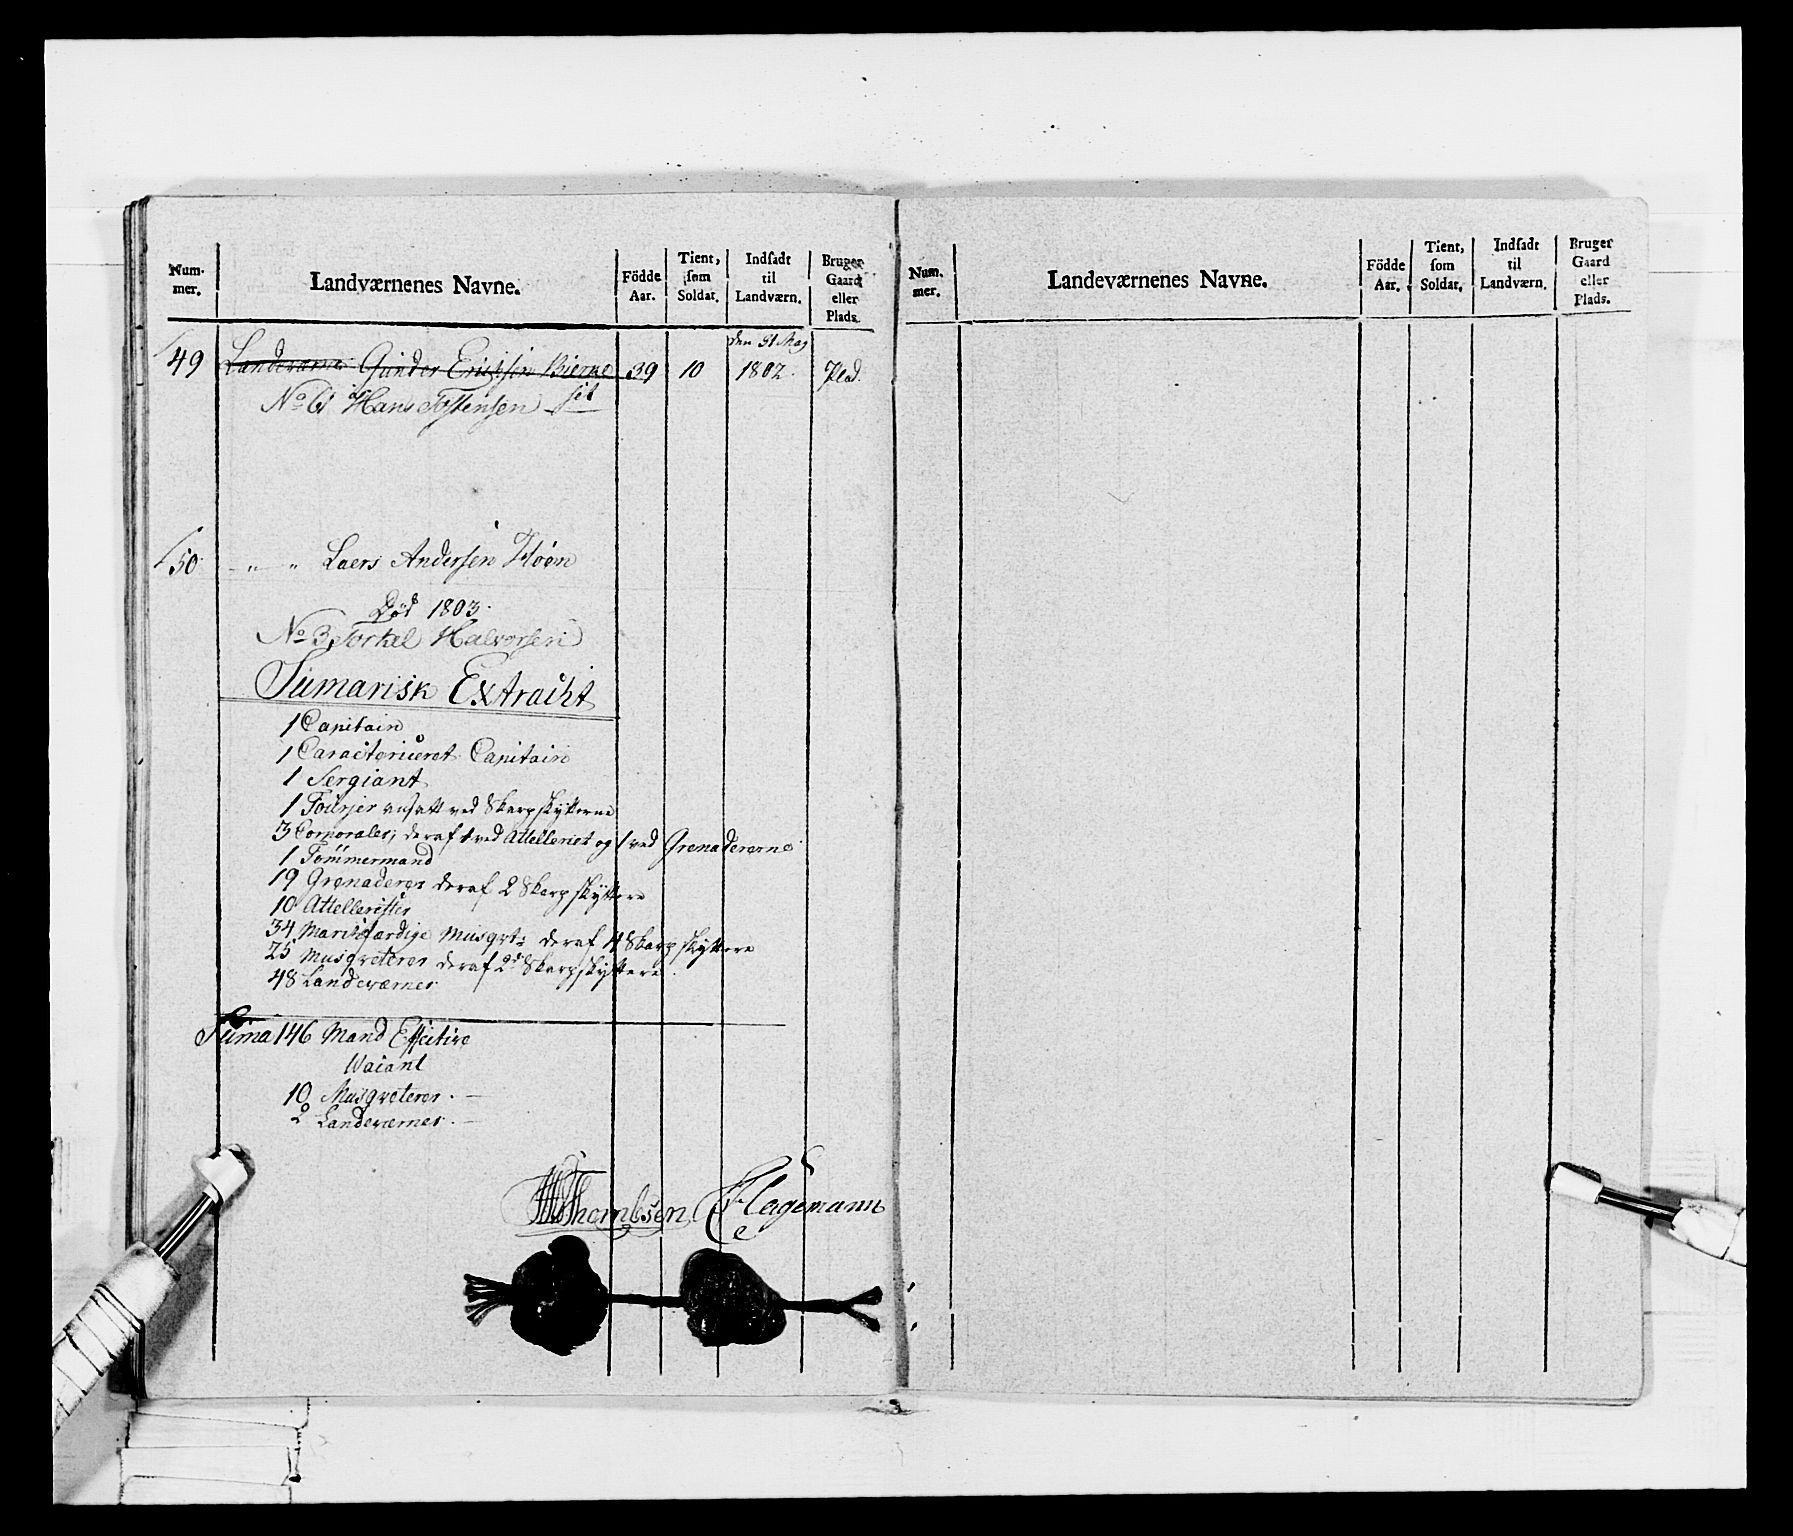 Num-
mer.
Landværnenes Navne.
Födde
Aar.
Tient,
som
Soldat.
Indsadt
til
Landværn.
Bruger
Gaard
eller
Plads.
49 Landeværner Gunder Erichsen Bierke 39 10 den 31 May 1802. Plad.
set
No 61 Hans Tostensen
50 " " Laers Andersen Moon
Död 1803.
No 3 Torkel Halvorsen
Sumarisk Extracht
1 Capitain
1 Caracteriseret Capitain
1 Sergiant
1 Fourjer ansatt ved Skarpskytterne
3 Corporaler, deraf 1 ved Attelleriet og 1 ved Grenadererne
1 Tømmermand
19 Grenaderer deraf 2 Skarpskyttere
10 Attellerister
34 Marisfærdige Musqvt: deraf 4 Skarpskyttere
25 Musqveterer deraf 2de Skarpskyttere
48 Landeværner
Suma 146 Mand Effective
Vacant
10 Musqveterer. —
2 Landeværner. —
Thombsen Hagemann
Num.
mer.
Landeværnenes Navne.
Födde
Aar.
Tient,
som
Soldat.
Indsadt
til
Landværn.
Bruger
Gaard
eller
Plads.